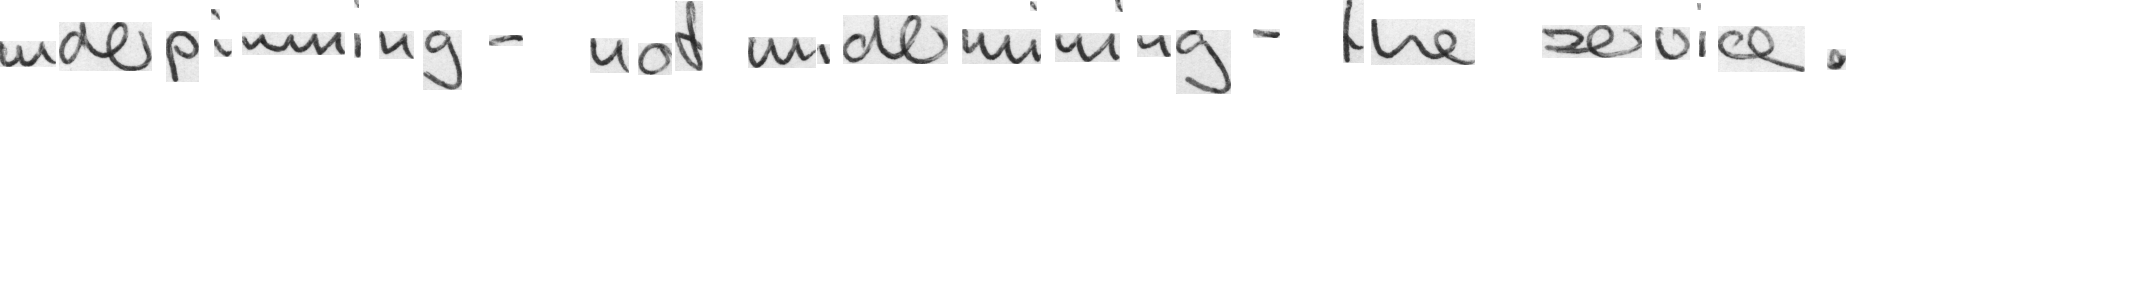 underpinning - not undermining - the service.